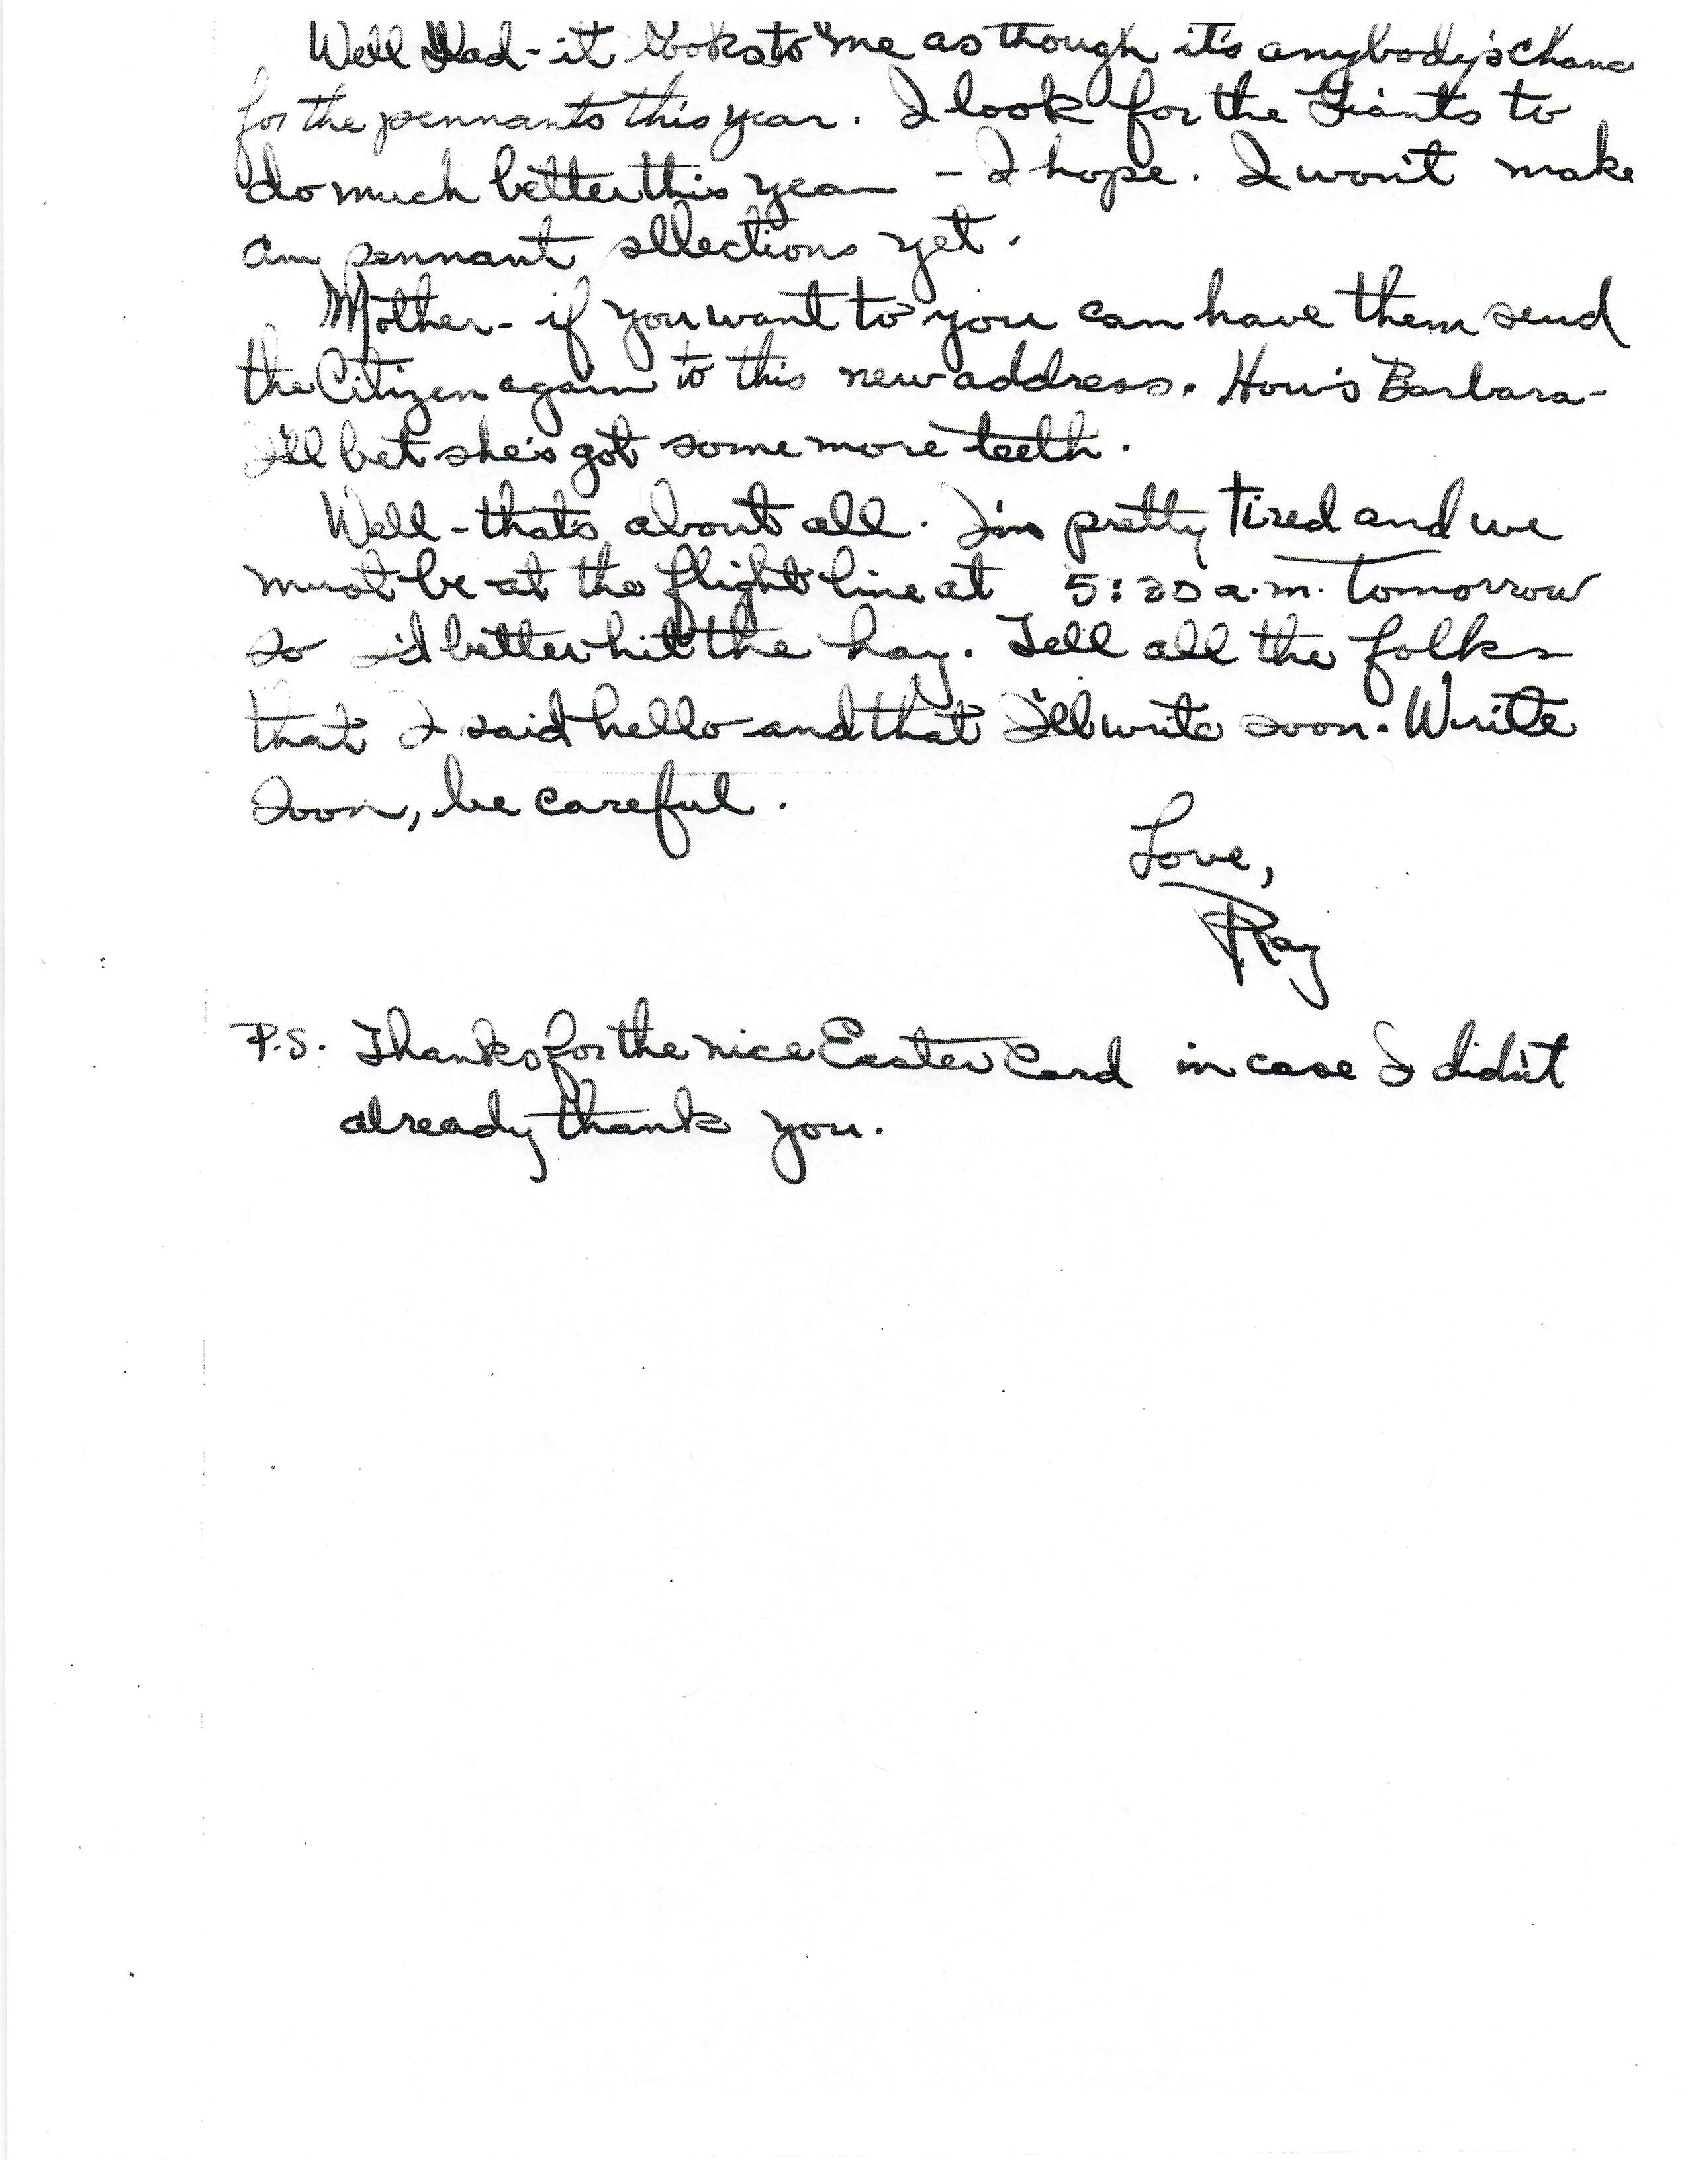 Well Dad - it looks to me as though it's anybody's chanc
for the pennants this year. I look for the Giants to
do much better this year - I hope. I won't make
any pennant sellections yet.
Mother - if you want to you can have them send
the Citizen again to this new address. How's Barbara -
I'll bet she's got some more teeth.
Well - that's about all. I'm pretty tired and we
must be at the flight line at a.m. tomorrow
so I'd better hit the hay. Tell all the folks
that I said hello and that I'll write soon. Write
soon, be careful.
Love,
Ray
P.S. Thanks for the nice Easter Card in case I didn't
already thank you.